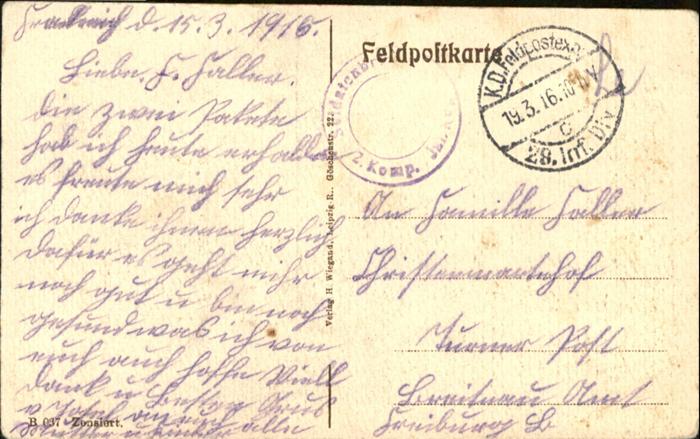 Frankreich d. 15.3.1916.
Liebe. F. Faller.
die zwei Pakete
hab ich heute erhalten
es freute mich sehr
ich danke ihnen herzlich
dafür es geht mir
noch gut u bin noch
gesund was ich von
euch auch hoffe Viell
Dank u Besten Grus
alle
B 037 Zensiert.
Verlag H. Wiegand, Leipzig R., Göschenstr. 22
Feldpostkarte
2. Komp.
K.D. Feldpostexp.
19.3.16.
c
29. Inf. Div
An Familie Faller
Turner Post
Breitnau Amt
Freiburg B